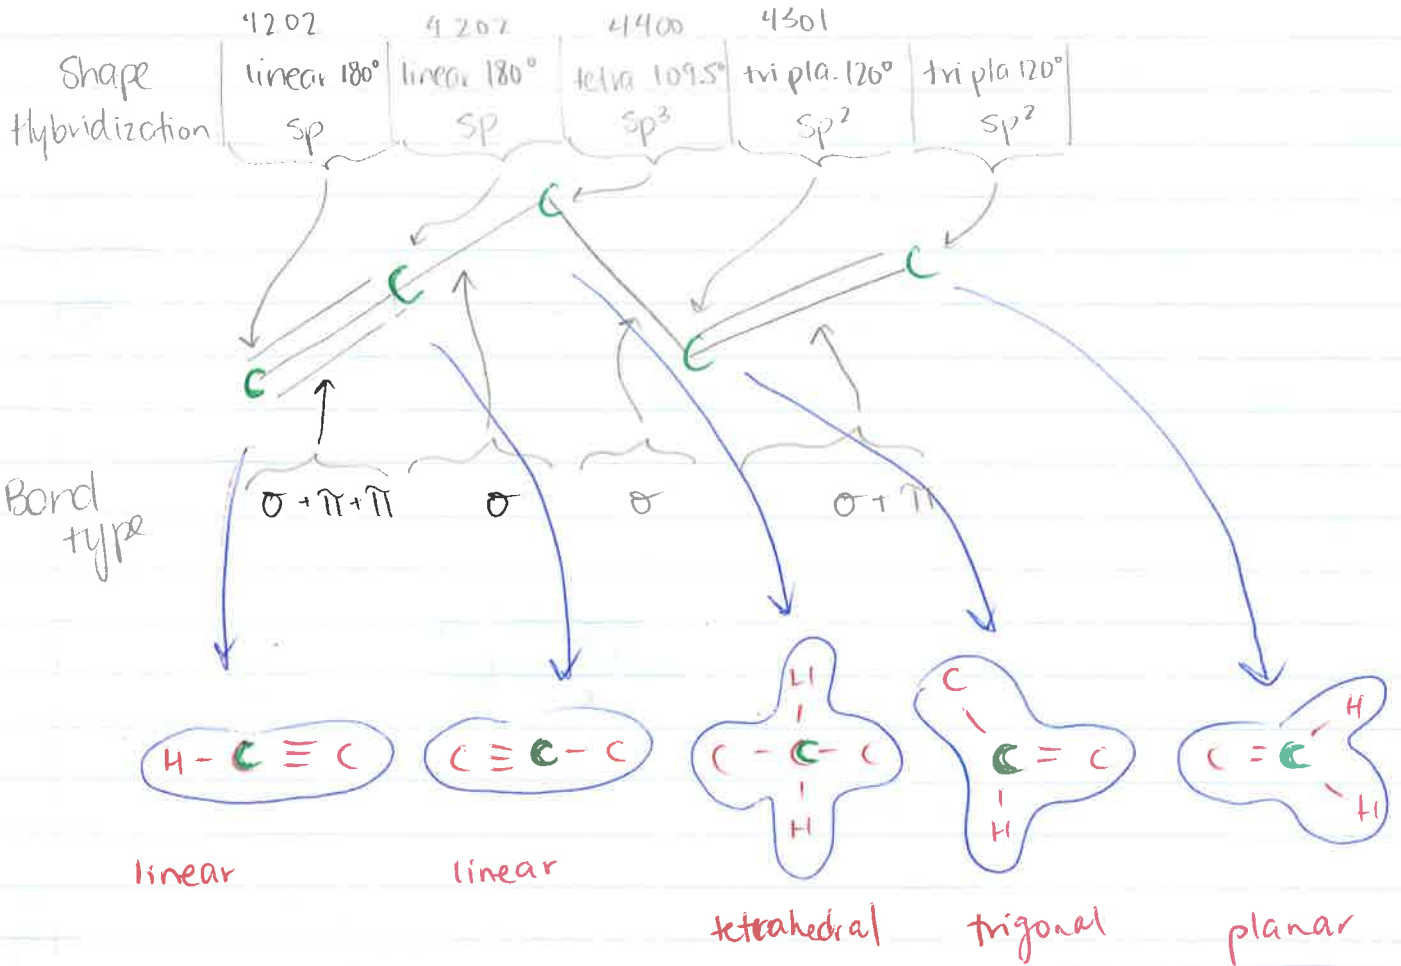 4202 4202 4400 4301
Shape linear 180° linear 180° tetra 109.5° tri pla. 120° tri pla 120°
Hybridization sp sp sp³ sp² sp²
C
C C
C C
Bond type σ + π + π σ σ σ + π
H - C ≡ C
C ≡ C - C
H
C - C - C
H
C
C = C
H
H
C = C
H
linear linear
tetrahedral trigonal planar